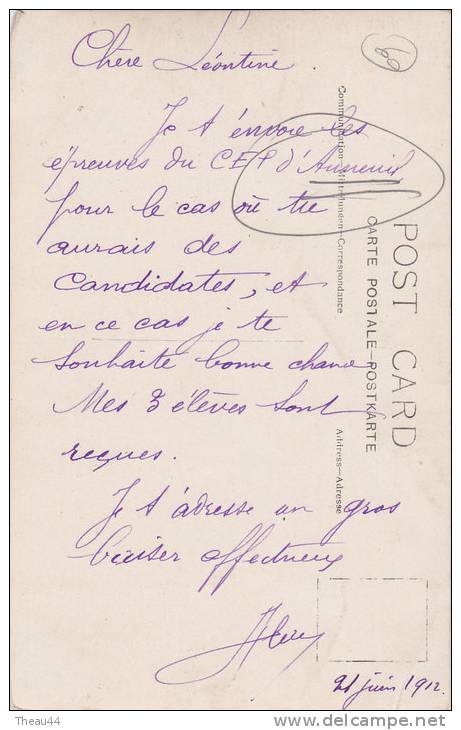 Chère Léontine
Je t'envoie les
épreuves du CEP d'Auneuil
pour le cas où tu
aurais des
Candidates, et
en ce cas je te
souhaite bonne chance
Mes 3 élèves sont
reçues.
Je t'adresse un gros
baiser affectueux
21 juin 1912
60
POST CARD
CARTE POSTALE-POSTKARTE
Communication-Mitteilungen-Correspondance
Address-Adresse
Theau44
delcampe.net